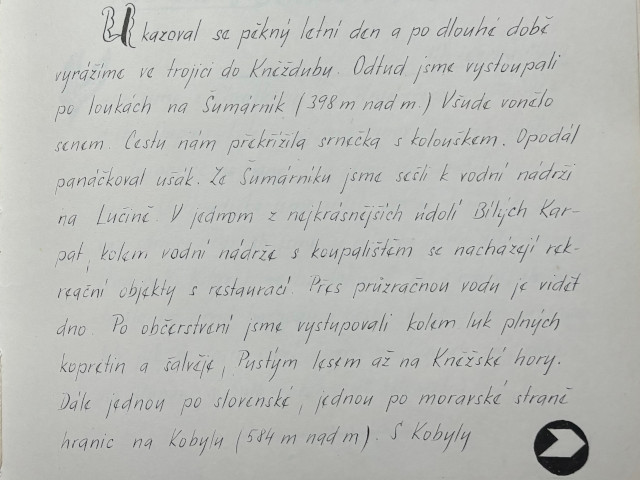 Ukazoval se pěkný letní den a po dlouhé době
vyrážíme ve trojici do Kněždubu. Odtud jsme vystoupali
po loukách na Šumárník (398 m nad m.) Všude vonělo
senem. Cestu nám překřížila srnečka s kolouškem. Opodál
panáčkoval ušák. Ze Šumárníku jsme sešli k vodní nádrži
na Lučině. V jednom z nejkrásnějších údolí Bílých Kar-
pat, kolem vodní nádrže s koupalištěm se nacházejí rek-
reační objekty s restaurací. Přes průzračnou vodu je vidět
dno. Po občerstvení jsme vystupovali kolem luk plných
kopretin a šalvěje, Pustým lesem až na Kněžské hory.
Dále jednou po slovenské, jednou po moravské straně
hranic na Kobylu (584 m nad m). S Kobyly